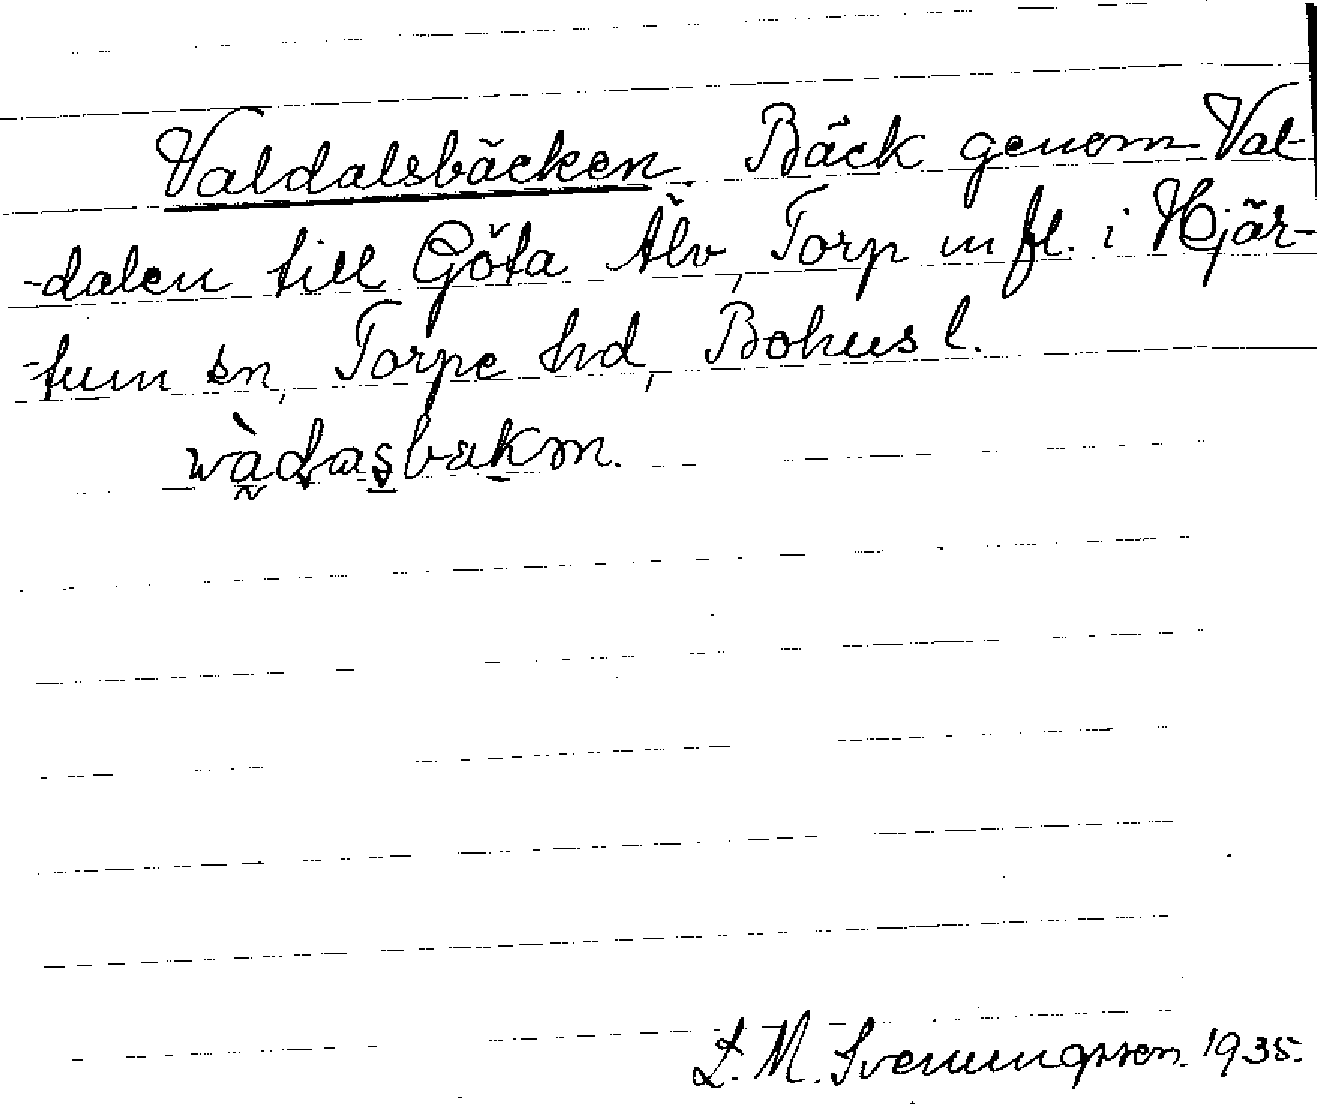 Valdalsbäcken. Bäck genom Val-
-dalen till Göta Älv, Torp m fl. i Hjär-
-tum sn, Torpe hd, Bohus l.
L. M. Svenungsson. 1935.